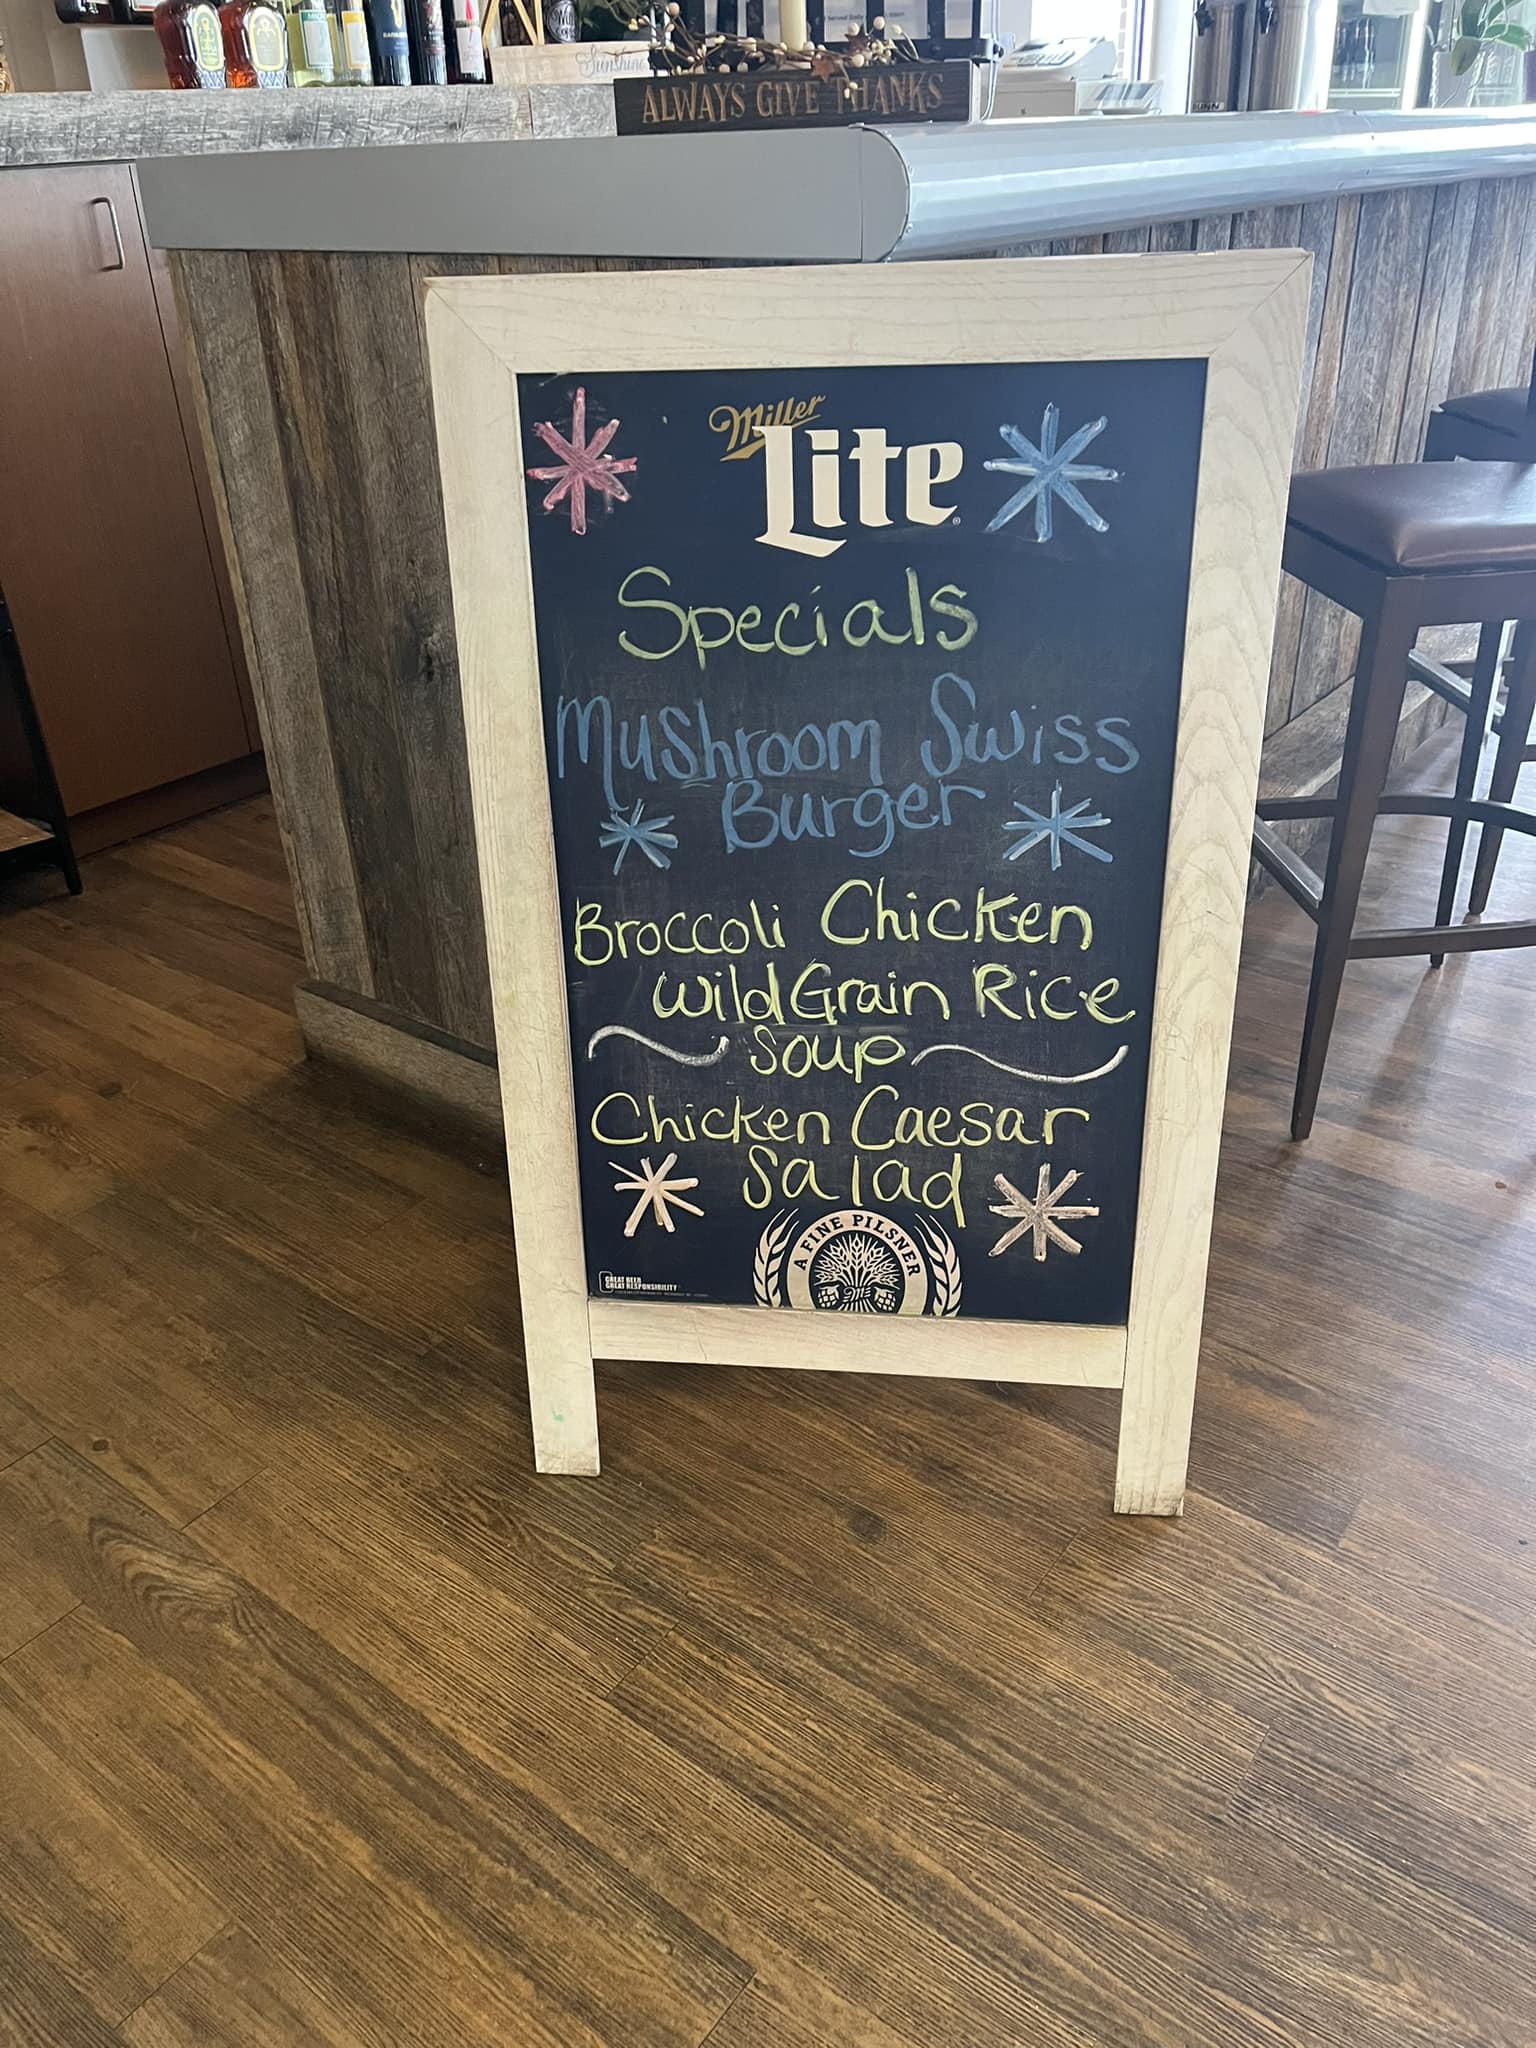 Sunshine
ALWAYS GIVE THANKS
BUNN
Miller
Lite
Specials
Mushroom Swiss
Burger
Broccoli Chicken
Wild Grain Rice
Soup
Chicken Caesar
Salad
A FINE PILSNER
GREAT BEER
GREAT RESPONSIBILITY